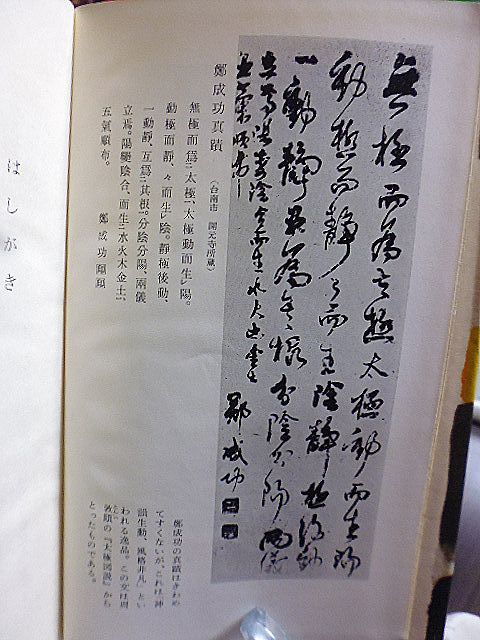 無極而為太極太極動而生陽
動極而静々而生陰静極後動
一動静互為其根分陰分陽兩儀
立焉陽変陰合而生水火木金土
五氣順布
鄭成功
鄭成功真蹟（台南市 開元寺所蔵）
無極而爲㆓太極㆒、太極動而生㆑陽。
動極而靜、々而生㆑陰。靜極後動、
一動靜、互爲㆓其根㆒。分陰分陽、兩儀
立焉。陽變陰合、而生㆓水火木金土㆒、
五氣順布。 鄭成功
鄭成功の真蹟はきわめ
てすくないが、これは「神
韻生動、風格非凡」とい
われる逸品。この文は周
敦頤の『太極図説』から
とったものである。
はしがき